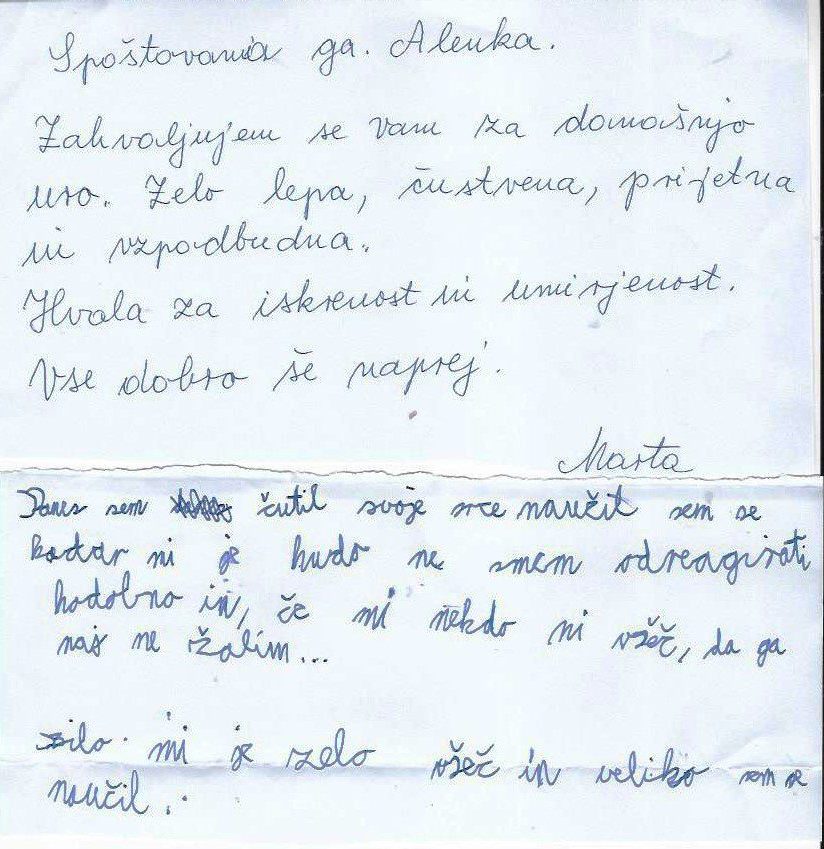 Spoštovana ga. Alenka.
Zahvaljujem se vam za domašnjo
uro. Zelo lepa, čustvena, prijetna
in vzpodbudna.
Hvala za iskrenost in umirjenost.
Vse dobro še naprej.
Marta
Danes sem čutil svoje srce naučit sem se
kadar mi je hudo ne smem odreagirati
hodobno in, če mi nekdo ni všeč, da ga
naj ne žalim...
bilo mi je zelo všeč in veliko sem se
naučil..